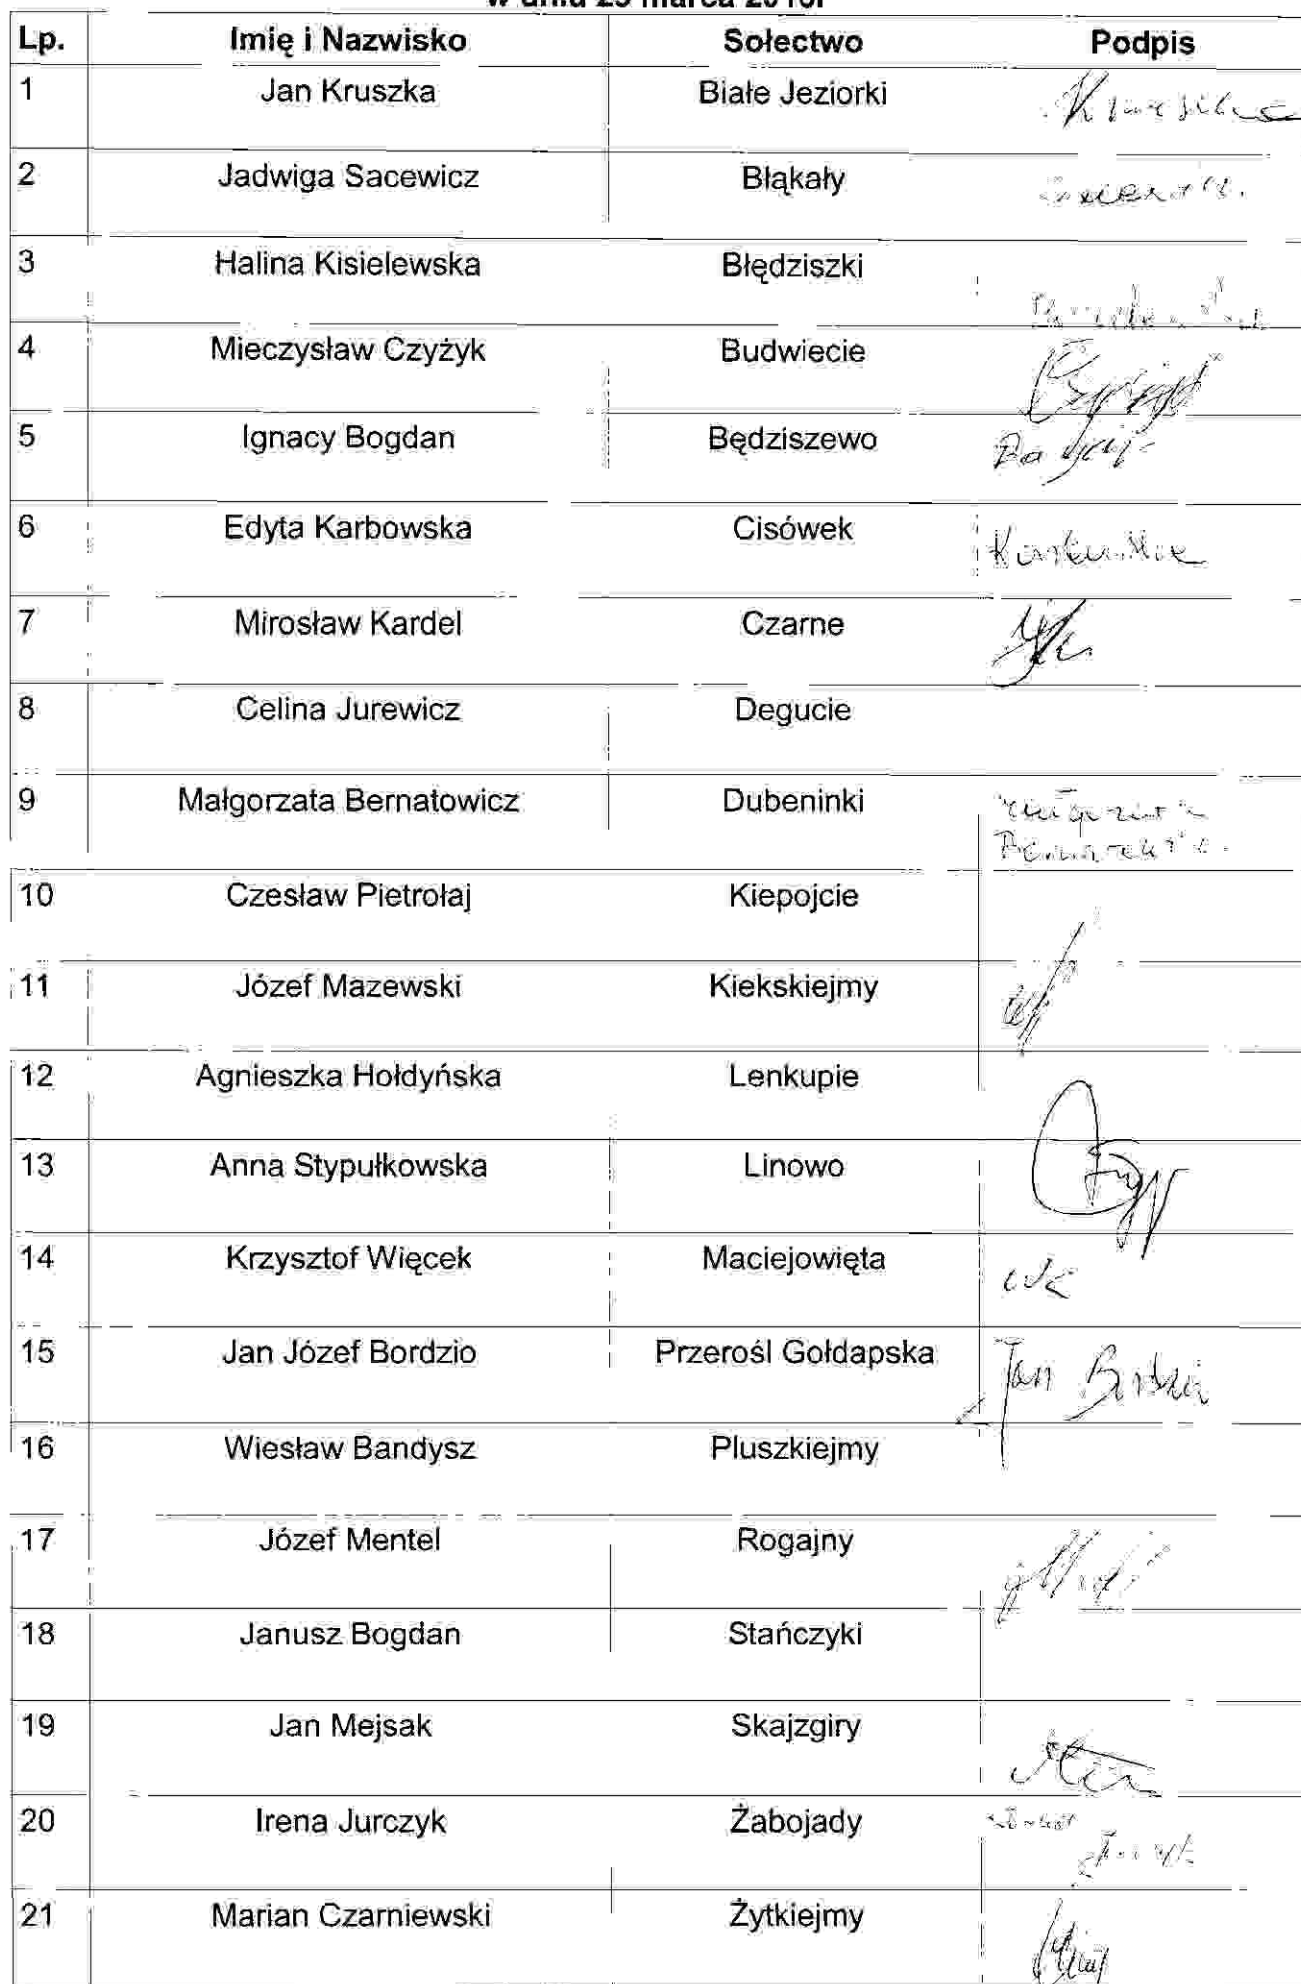 Lp. Imię i Nazwisko Sołectwo Podpis
1 Jan Kruszka Białe Jeziorki
2 Jadwiga Sacewicz Błąkały
3 Halina Kisielewska Błędziszki
4 Mieczysław Czyżyk Budwiecie
5 Ignacy Bogdan Będziszewo
6 Edyta Karbowska Cisówek
7 Mirosław Kardel Czarne
8 Celina Jurewicz Degucie
9 Małgorzata Bernatowicz Dubeninki
10 Czesław Pietrołaj Kiepojcie
11 Józef Mazewski Kiekskiejmy
12 Agnieszka Hołdyńska Lenkupie
13 Anna Stypułkowska Linowo
14 Krzysztof Więcek Maciejowięta
15 Jan Józef Bordzio Przerośl Gołdapska Jan
16 Wiesław Bandysz Pluszkiejmy
17 Józef Mentel Rogajny
18 Janusz Bogdan Stańczyki
19 Jan Mejsak Skajzgiry
20 Irena Jurczyk Żabojady
21 Marian Czarniewski Żytkiejmy